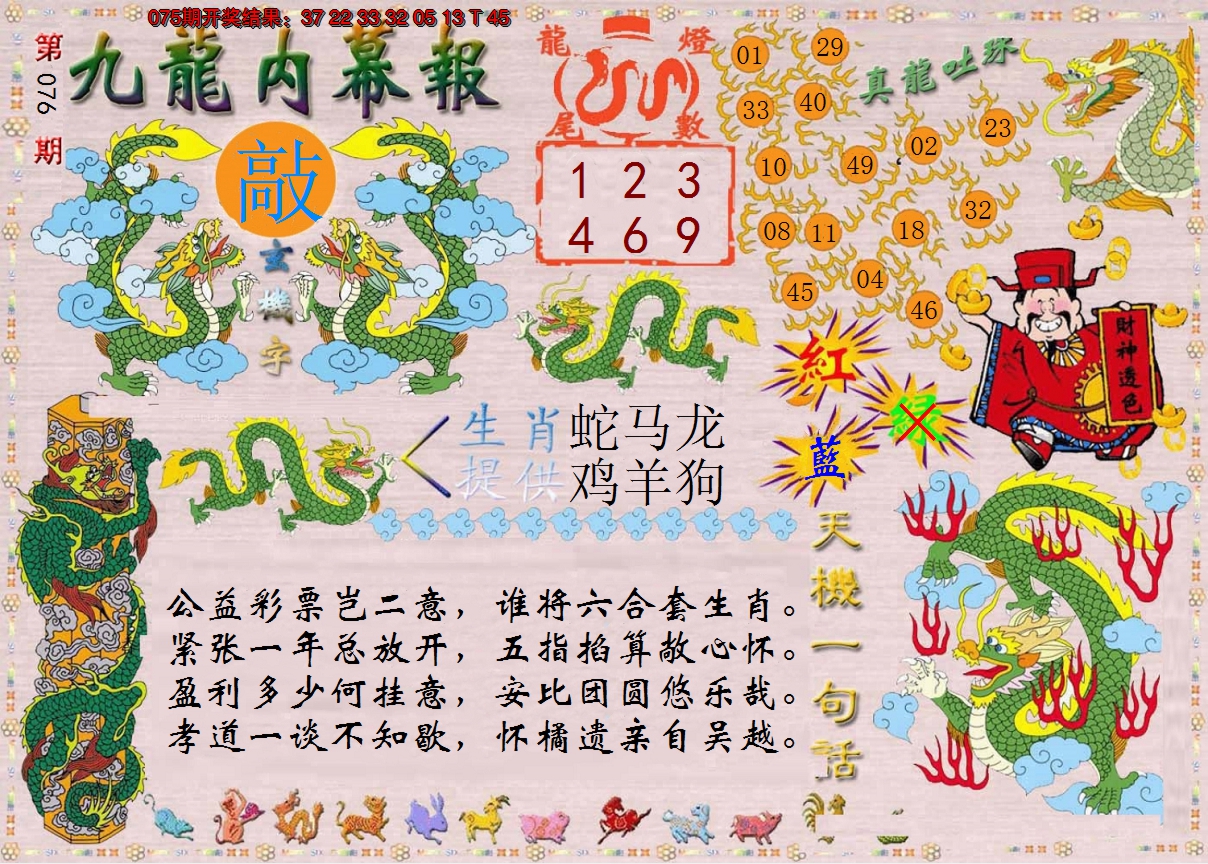 075期开奖结果：37 22 33 32 05 13 T 45
第076期
九龍内幕報
敲
玄機字
龍燈尾數
1 2 3
4 6 9
真龍吐珠
01 29
33 40
02 23
10 49
08 11 18 32
45 04 46
財神透色
紅
绿
藍
生肖提供
蛇马龙
鸡羊狗
天機一句話
公益彩票岂二意，谁将六合套生肖。
紧张一年总放开，五指掐算敞心怀。
盈利多少何挂意，安比团圆悠乐哉。
孝道一谈不知歇，怀橘遗亲自吴越。